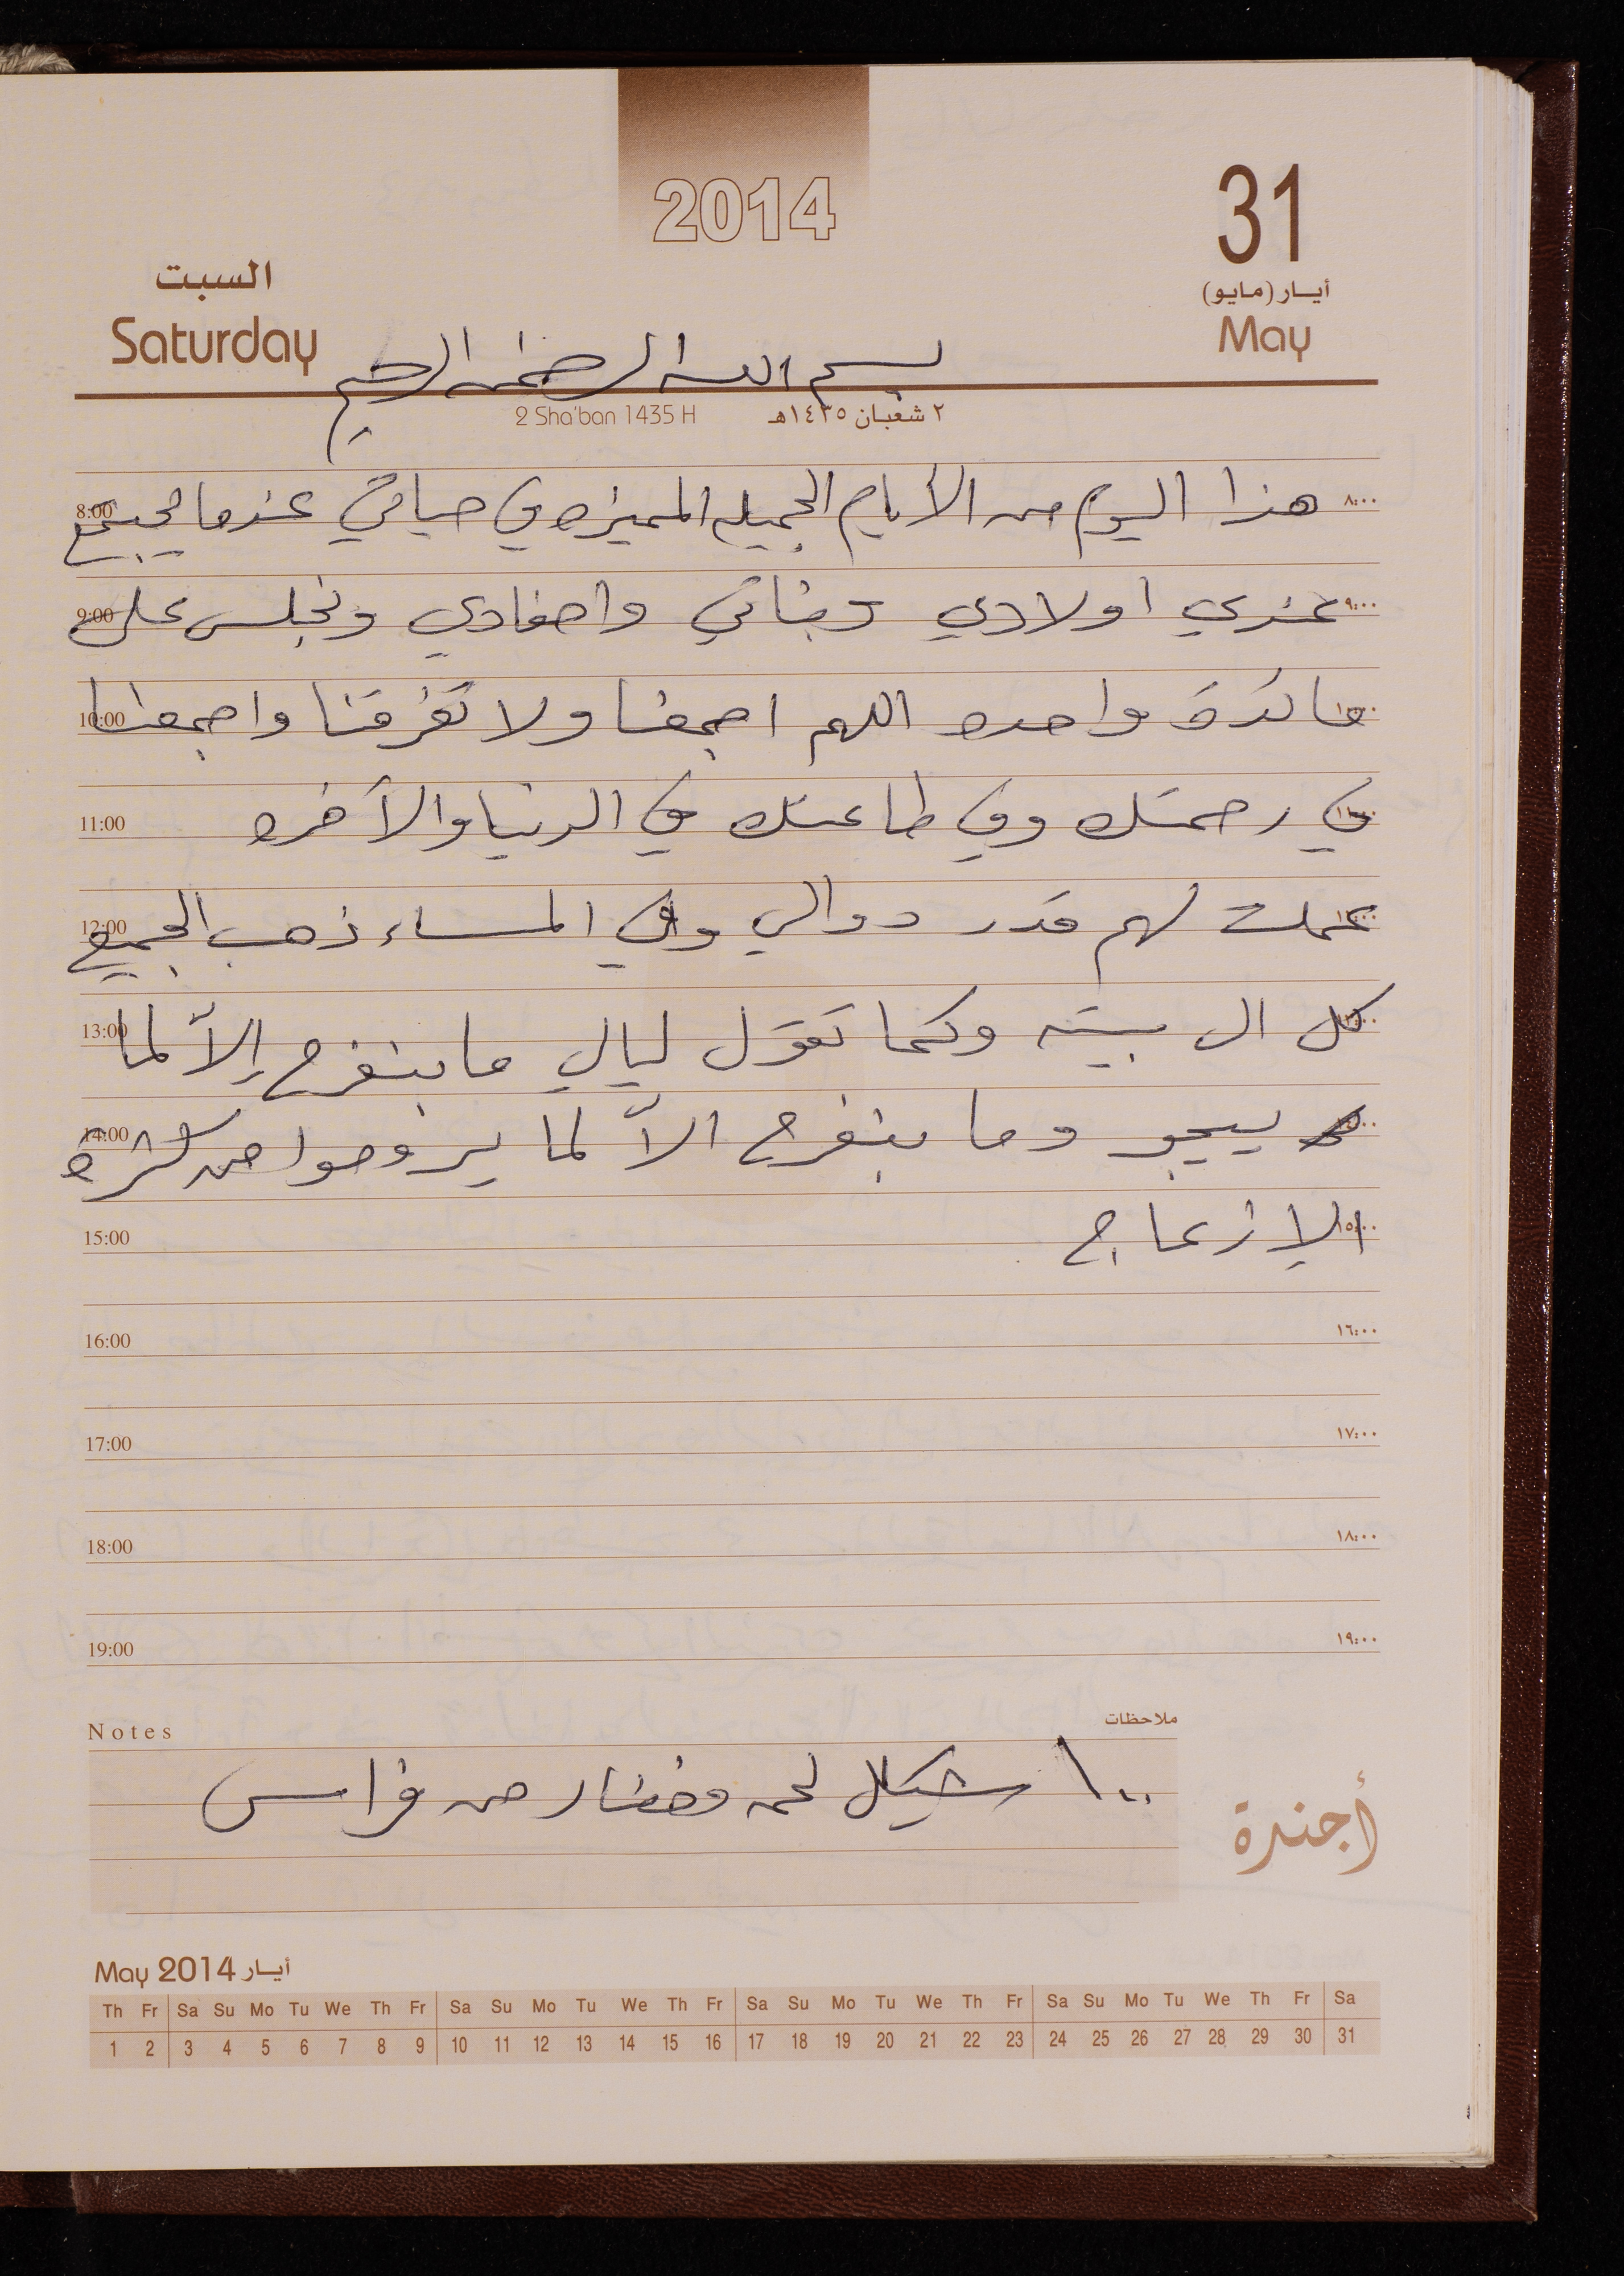 2014
31
أيـار (مايو)
May
السبت
Saturday
بسم الله الرحمن الرحيم
2 Sha'ban 1435 H ٢ شعبان ١٤٣٥هـ
٨:٠٠ هذا اليوم من الأيام الجميله المميزه في حياتي عندما يجتمع 8:00
٩:٠٠ عندي اولادي وبناتي واحفادي ونجلس على 9:00
١٠:٠٠ مائدة واحده اللهم اجمعنا ولا تفرقنا واجمعنا 10:00
١١:٠٠ في رحمتك وفي طاعتك في الدنيا والآخره 11:00
١٢:٠٠ عملت لهم قدر دوالي وفي المساء ذهب الجميع 12:00
١٣:٠٠ كل ال بيته وكما تقول ليالي ما بنفرح إلاّ لما 13:00
١٤:٠٠ ييجو وما بنفرح الاّ لما يروحوا من كثرة 14:00
١٥:٠٠ الإزعاج 15:00
١٦:٠٠ 16:00
١٧:٠٠ 17:00
١٨:٠٠ 18:00
١٩:٠٠ 19:00
Notes ملاحظات
١٠٠ شيكل لحمه وخضار من فراس
أجندة
May 2014 أيـار
Th Fr Sa Su Mo Tu We Th Fr Sa Su Mo Tu We Th Fr Sa Su Mo Tu We Th Fr Sa Su Mo Tu We Th Fr Sa
1 2 3 4 5 6 7 8 9 10 11 12 13 14 15 16 17 18 19 20 21 22 23 24 25 26 27 28 29 30 31